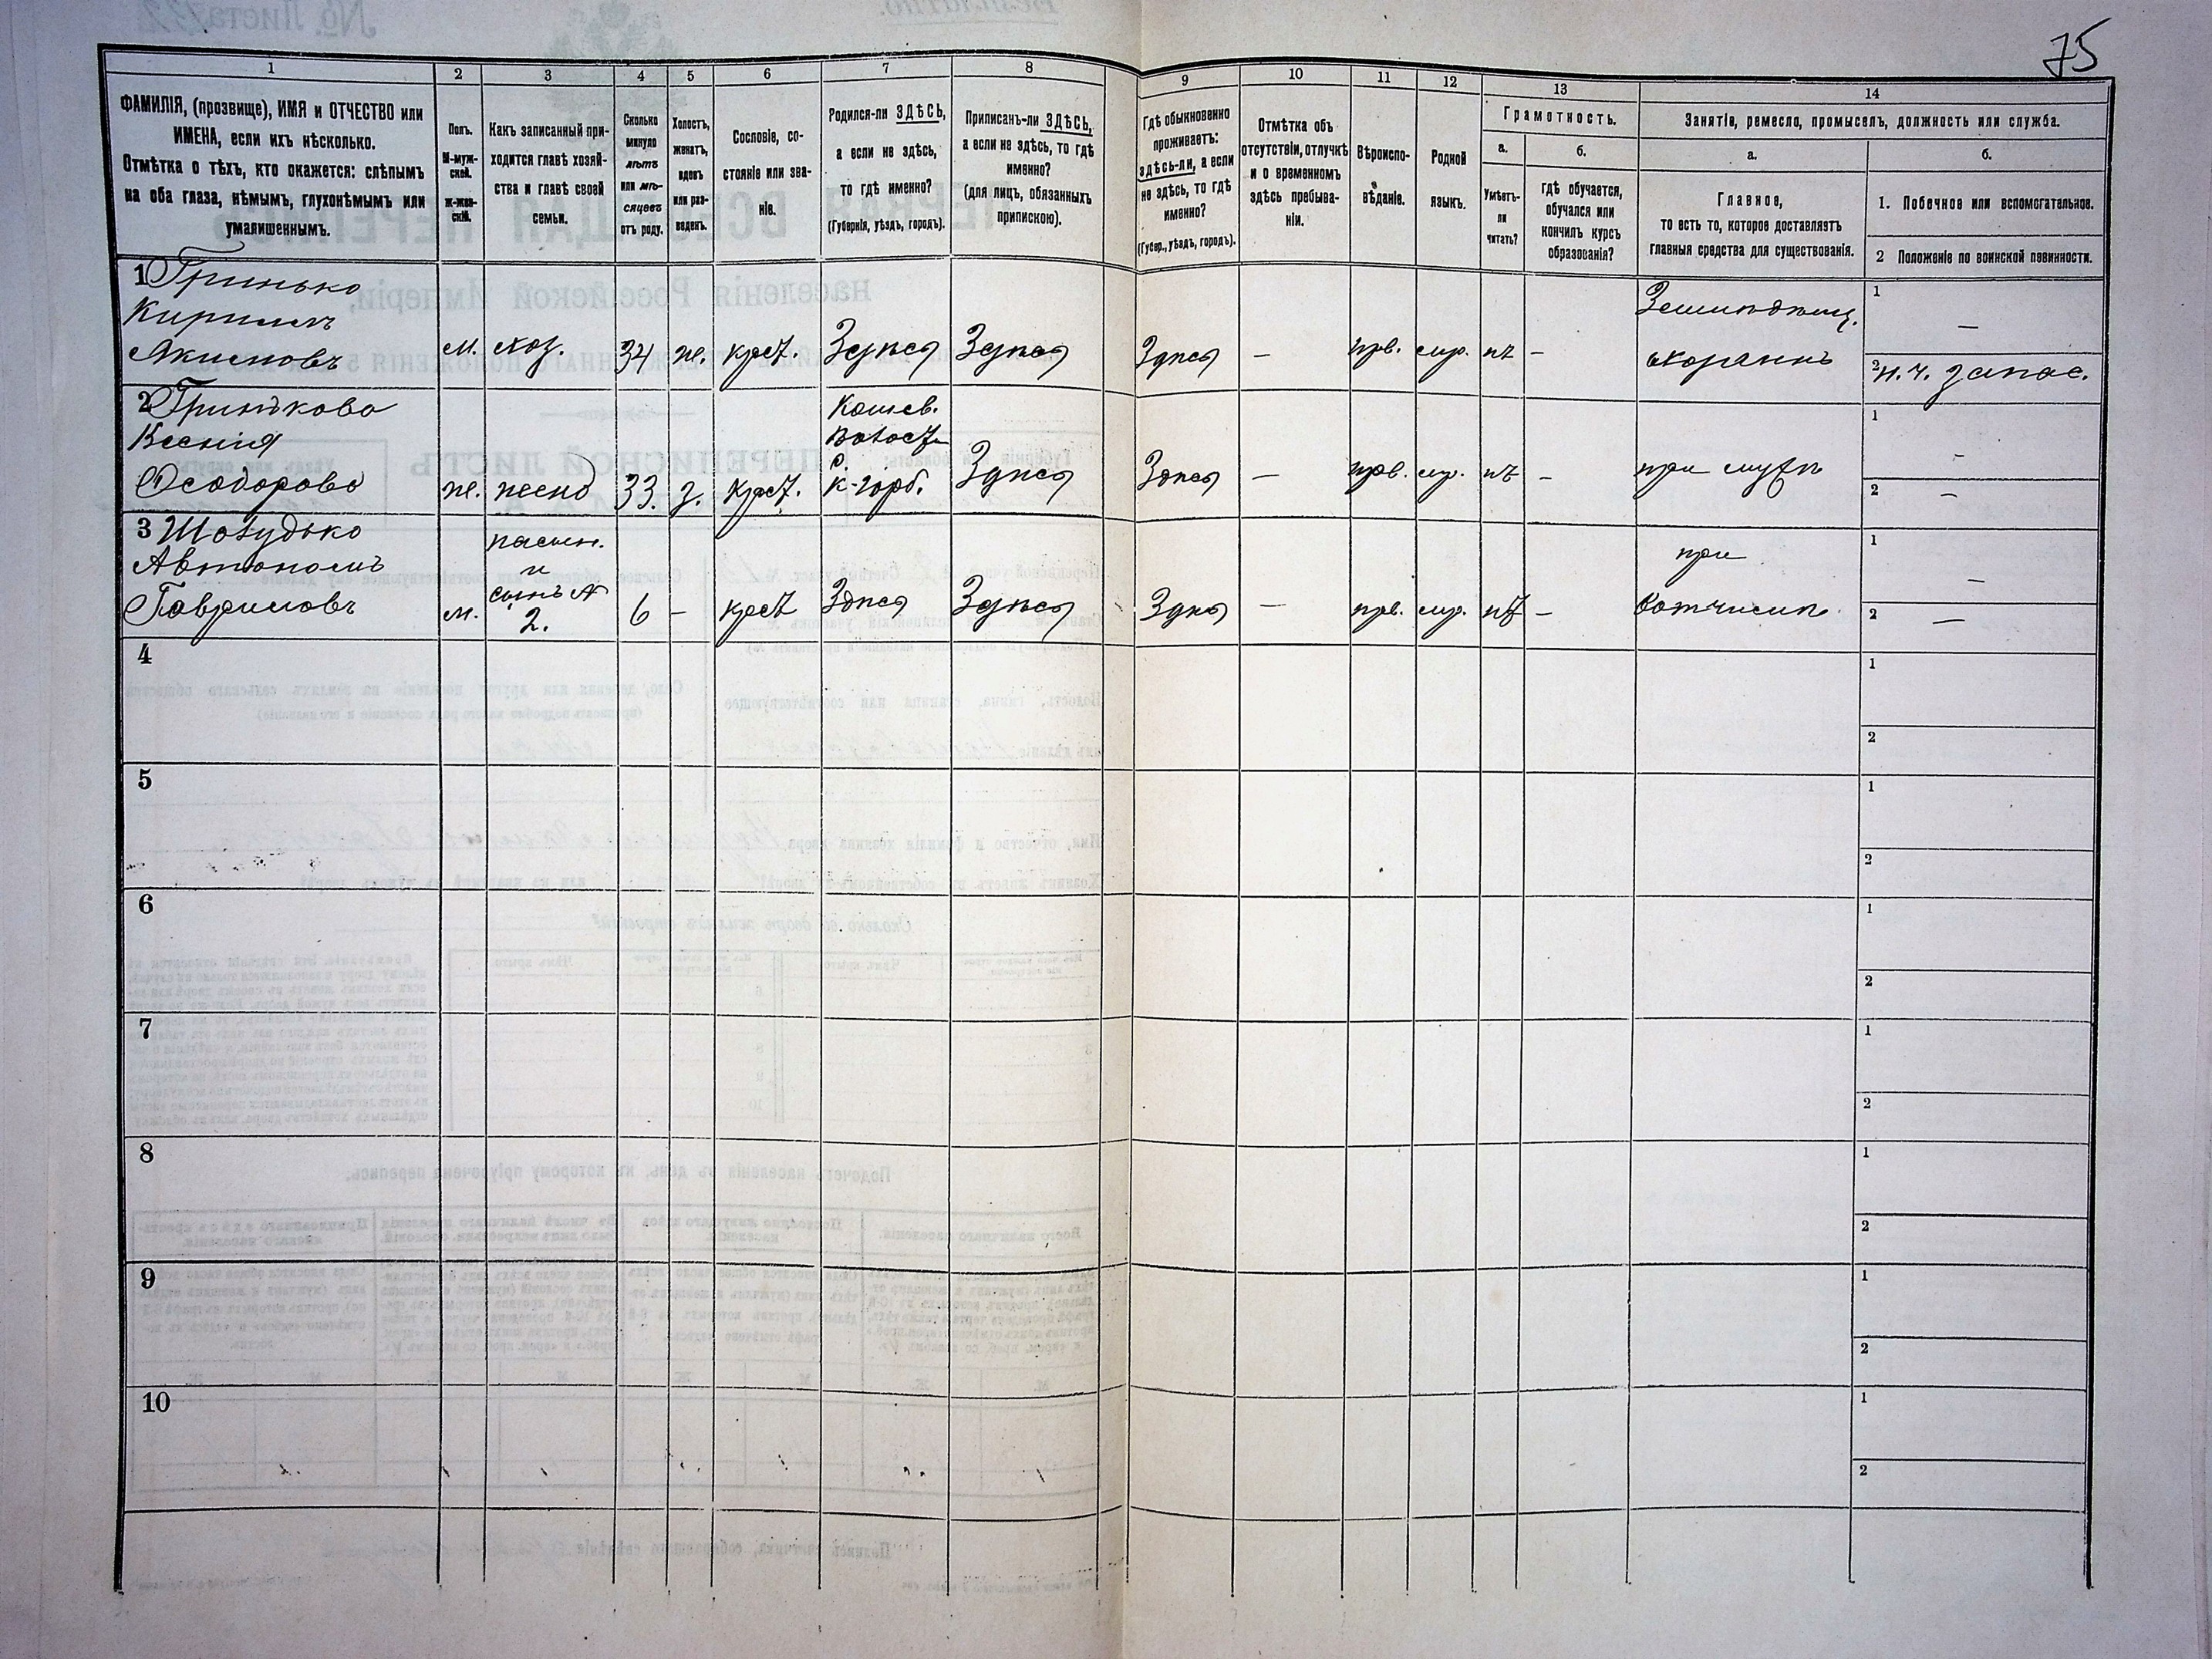 75
1 2 3 4 5 6 7 8 9 10 11 12 13 14
ФАМИЛІЯ, (прозвище), ИМЯ и ОТЧЕСТВО или
ИМЕНА, если ихъ нѣсколько.
Отмѣтка о тѣхъ, кто окажется: слѣпымъ
на оба глаза, нѣмымъ, глухонѣмымъ или
умалишеннымъ.
Полъ.
М-муж-
ской.
ж-жен-
скій.
Какъ записанный при-
ходится главѣ хозяй-
ства и главѣ своей
семьи.
Сколько
минуло
лѣтъ
или мѣ-
сяцевъ
отъ роду.
Холостъ,
женатъ,
вдовъ
или раз-
веденъ.
Сословіе, со-
стояніе или зва-
ніе.
Родился-ли ЗДѢСЬ,
а если не здѣсь,
то гдѣ именно?
(Губернія, уѣздъ, городъ).
Приписанъ-ли ЗДѢСЬ,
а если не здѣсь, то гдѣ
именно?
(для лицъ, обязанныхъ
припискою).
Гдѣ обыкновенно
проживаетъ:
здѣсь-ли, а если
не здѣсь, то гдѣ
именно?
(Губер., уѣздъ, городъ).
Отмѣтка объ
отсутствіи, отлучкѣ
и о временномъ
здѣсь пребыва-
ніи.
Вѣроиспо-
вѣданіе.
Родной
языкъ.
Грамотность.
а.
Умѣетъ-
ли
читать?
б.
гдѣ обучается,
обучался или
кончилъ курсъ
образованія?
Занятіе, ремесло, промыселъ, должность или служба.
а.
Главное,
то есть то, которое доставляетъ
главныя средства для существованія.
б.
1. Побочное или вспомогательное.
2 Положеніе по воинской повинности.
1 Гринько
Кириллъ
Якимовъ
м. хоз. 34 ж. крест. Здѣся Здѣся Здѣся — прв. млр. нѣ —
Земледѣлец.
1 —
2 н.ч. запас.
2 Гринькова
Ксенія
Феодорова
же. жена 33. з. крест.
волост
с.
Здѣся Здѣся — прв. млр. нѣ — при мужѣ
1 -
2 —
3
Автономъ
Гавриловъ
м.
пасын.
и
сынъ №
2.
6 — крест Здѣся Здѣся Здѣся — прв. млр. нѣ —
при
вотчимѣ
1 —
2 —
4 1
2
5 1
2
6 1
2
7 1
2
8 1
2
9 1
2
10 1
2